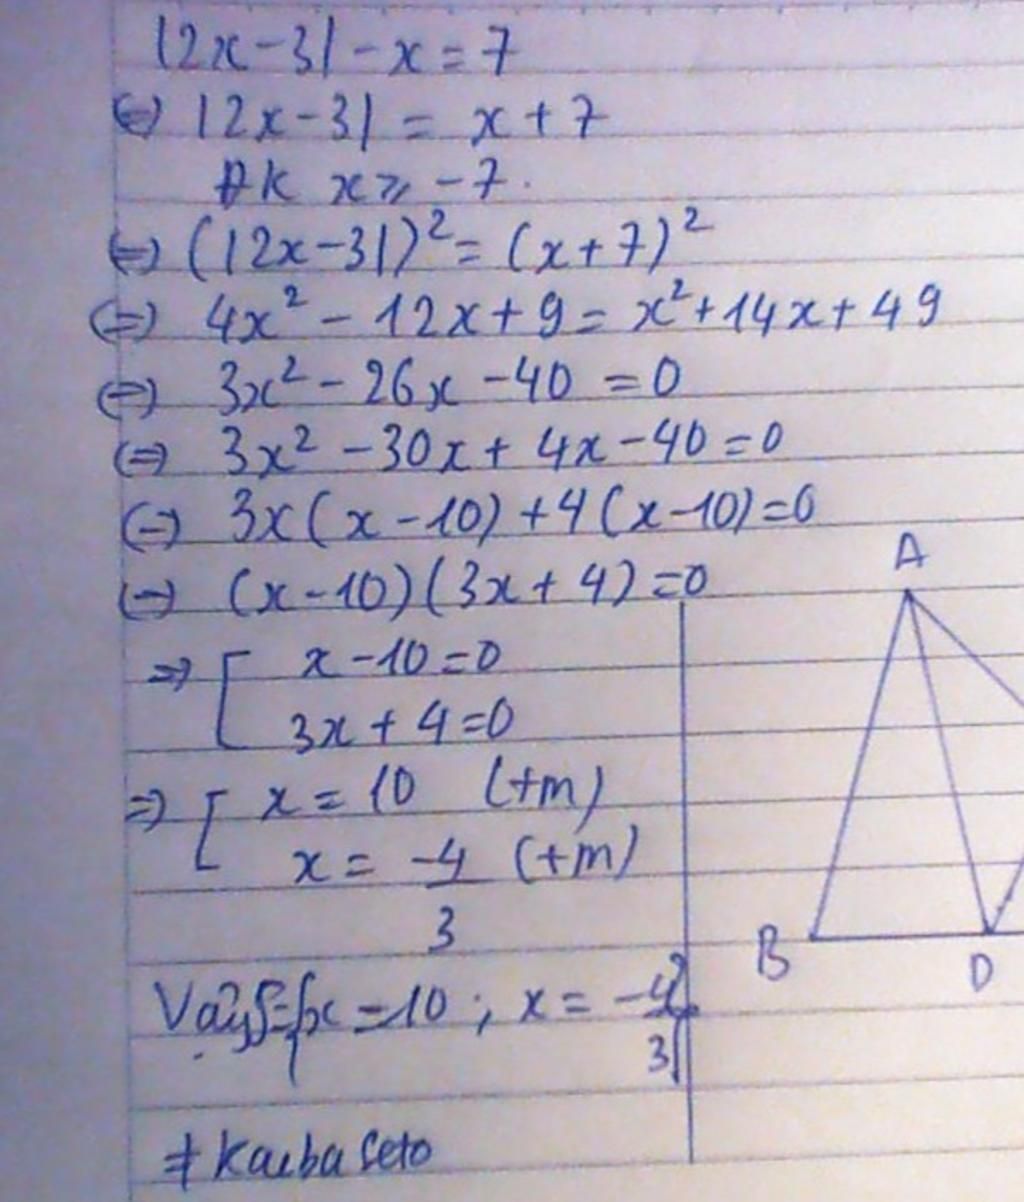 |2x-3| - x = 7
⇔ |2x-3| = x + 7
ĐK x ≥ -7.
⇔ (|2x-3|)² = (x+7)²
⇔ 4x² - 12x + 9 = x² + 14x + 49
⇔ 3x² - 26x - 40 = 0
⇔ 3x² - 30x + 4x - 40 = 0
⇔ 3x(x-10) + 4(x-10) = 0
⇔ (x-10)(3x+4) = 0
⇒ [ x - 10 = 0
3x + 4 = 0
⇒ [ x = 10 (tm)
x = -4/3 (tm)
Vậy S = {x = 10 ; x = -4/3}
# Kaibaseto
A
B
D